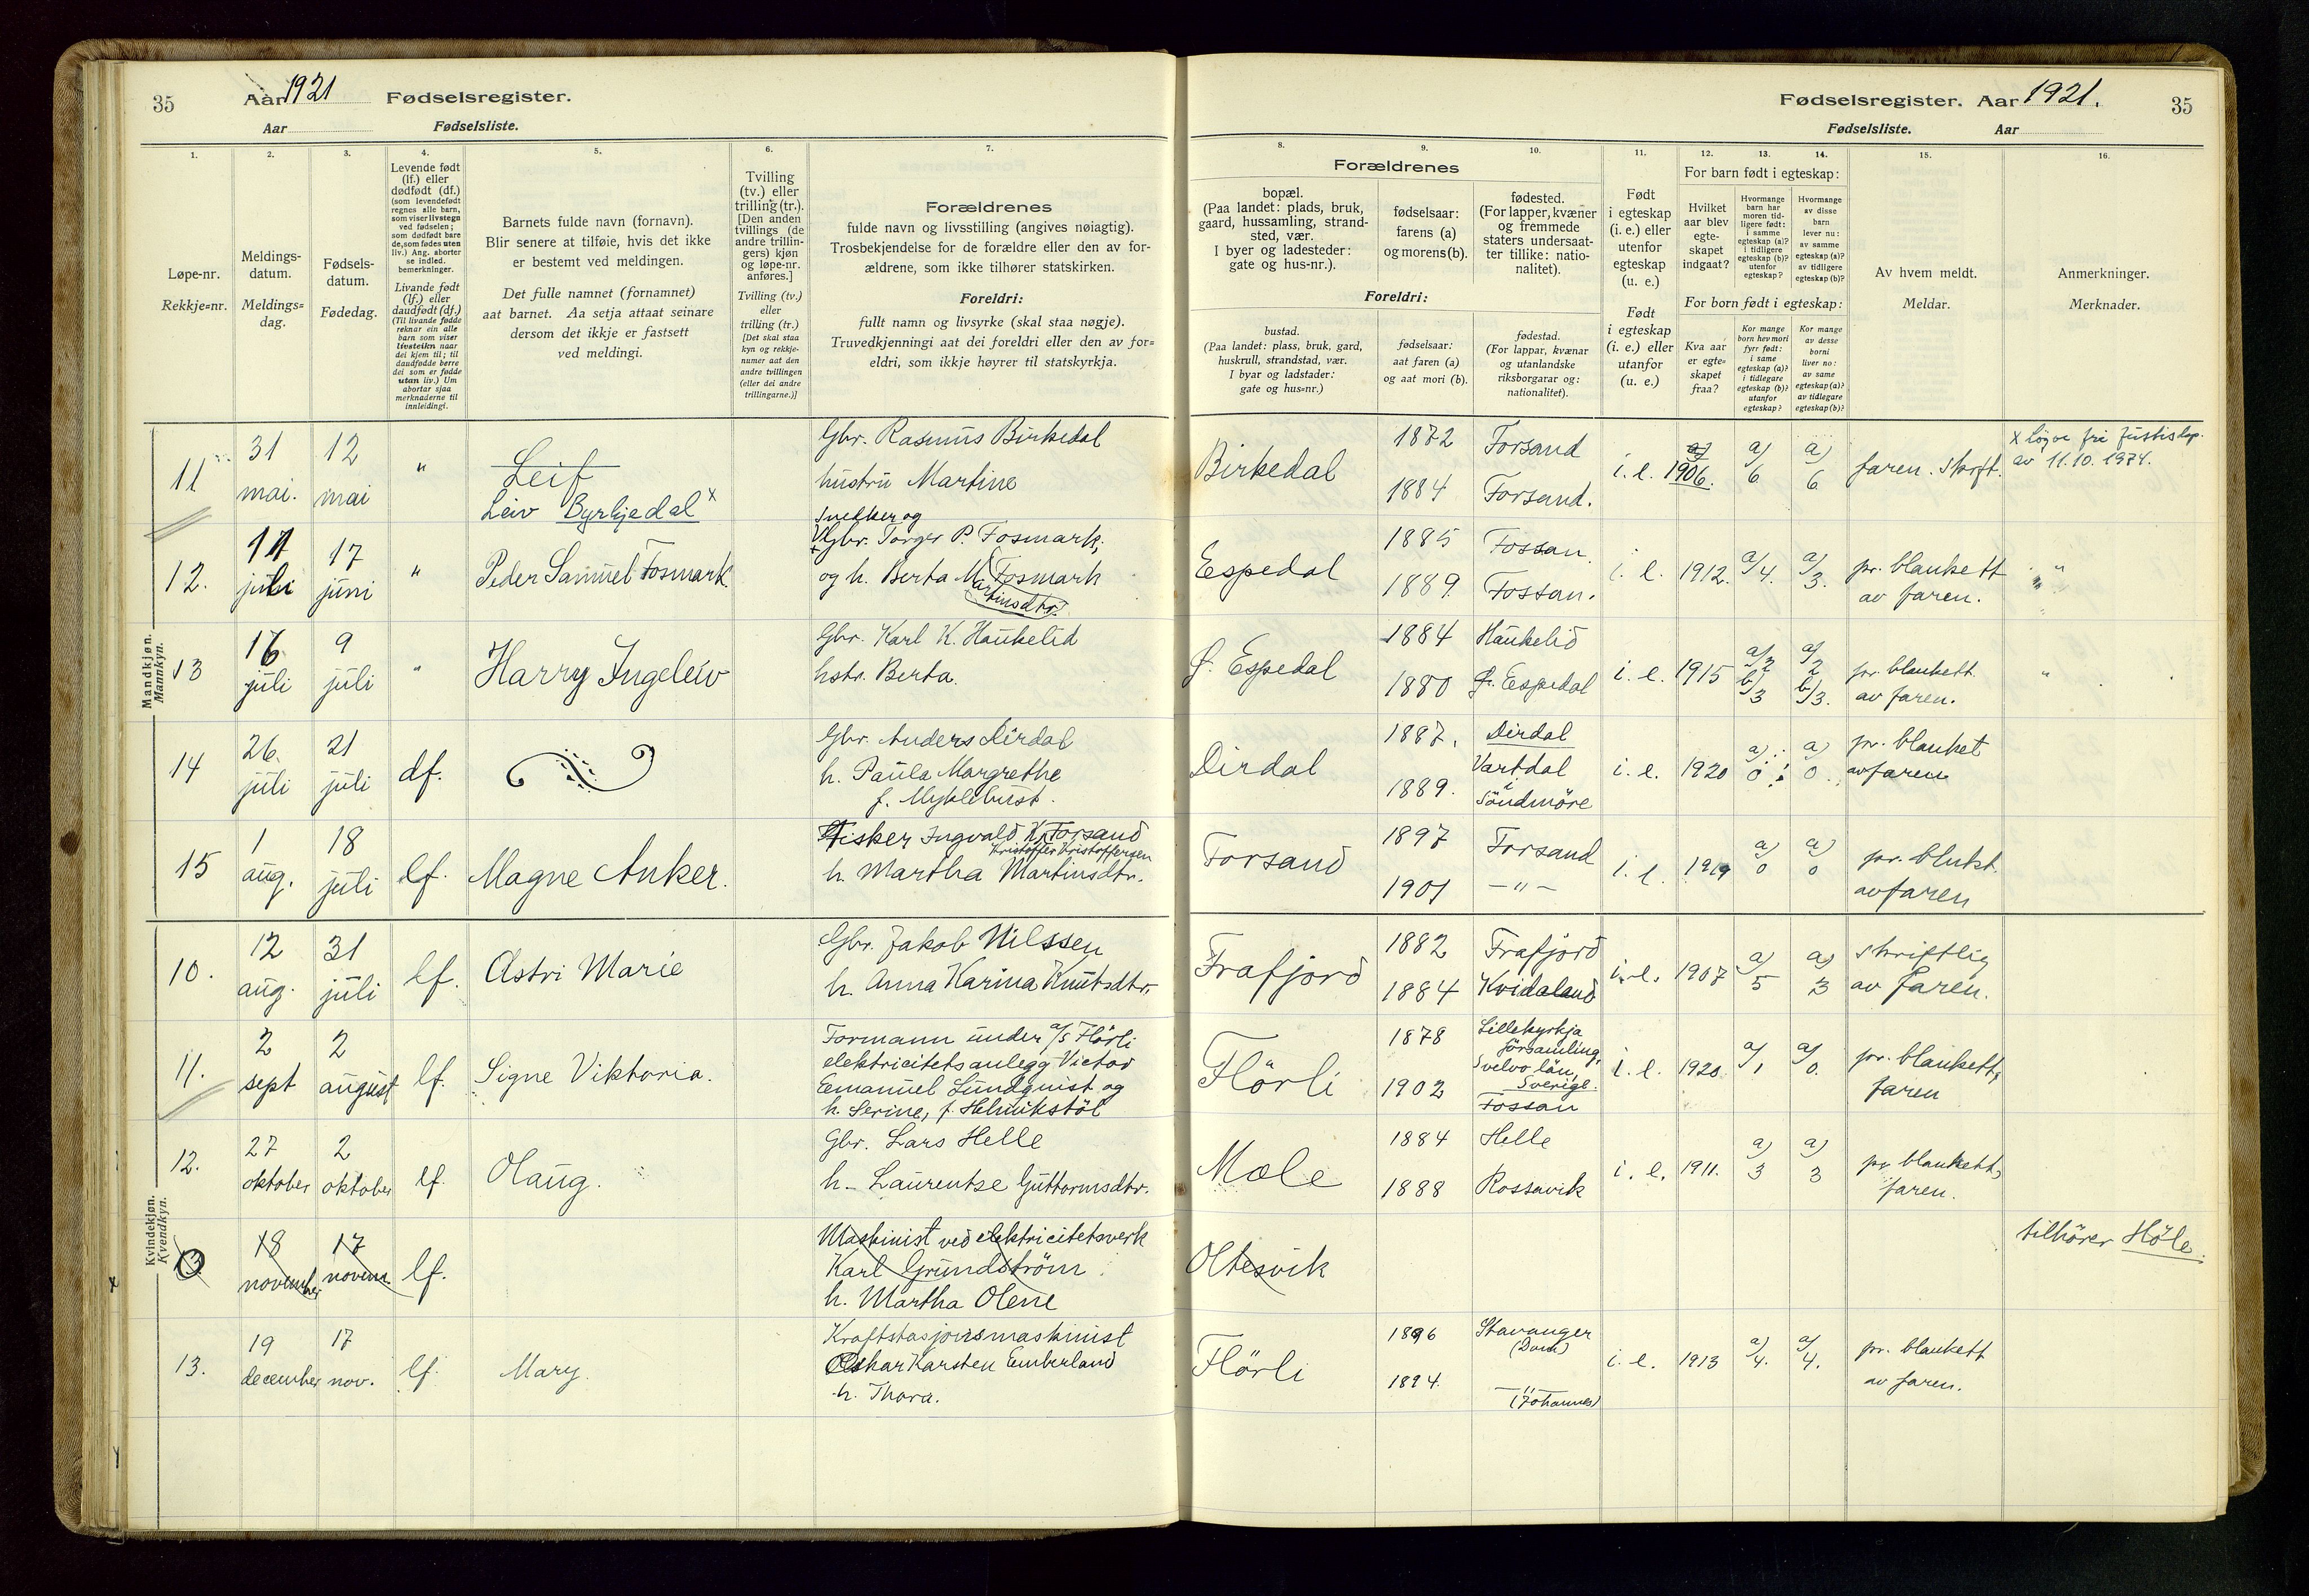 35 Aar 1921 Fødselsregister.
Aar Fødselsliste.
Fødselsregister. Aar 1921. 35
Fødselsliste. Aar
1.
Løpe-nr.
Rekkje=nr.
2.
Meldings-
datum.
Meldings=
dag.
3.
Fødsels-
datum.
Fødedag.
4.
Levende født
(lf.) eller
dødfødt (df.)
(som levendefødt
regnes alle barn,
som viser livstegn
ved fødselen;
som dødfødt bare
de, som fødes uten
liv.) Ang. aborter
se indled.
bemerkninger.
Livande født
(lf.) eller
daudfødt (df.)
(Til livande fødde
reknar ein alle
barn som viser
livsteikn naar
dei kjem til; til
daudfødde berre
dei som er fødde
utan liv.) Um
abortar sjaa
merknaderne til
innleidingi.
5.
Barnets fulde navn (fornavn).
Blir senere at tilføie, hvis det ikke
er bestemt ved meldingen.
Det fulle namnet (fornamnet)
aat barnet. Aa setja attaat seinare
dersom det ikkje er fastsett
ved meldingi.
6.
Tvilling
(tv.) eller
trilling (tr.).
[Den anden
tvillings (de
andre trillin-
gers) kjøn
og løpe-nr.
anføres.]
Tvilling (tv.)
eller
trilling (tr.)
[Det skal staa
kyn og rekkje-
numer aat den
andre tvillingen
(eller dei andre
trillingarne.)]
7.
Forældrenes
fulde navn og livsstilling (angives nøiagtig).
Trosbekjendelse for de forældre eller den av for-
ældrene, som ikke tilhører statskirken.
Foreldri:
fullt namn og livsyrke (skal staa nøgje).
Truvedkjenningi aat dei foreldri eller den av for=
eldri, som ikkje høyrer til statskyrkja.
Forældrenes
8.
bopæl.
(Paa landet: plads, bruk,
gaard, hussamling, strand-
sted, vær.
I byer og ladesteder:
gate og hus-nr.).
9.
fødselsaar:
farens (a)
og morens (b).
10.
fødested.
(For lapper, kvæner
og fremmede
staters undersaat-
ter tillike: natio-
nalitet).
Foreldri:
bustad.
(Paa landet: plass, bruk, gard,
huskrull, strandstad, vær.
I byar og ladstader:
gate og hus=nr.)
fødselsaar:
aat faren (a)
og aat mori (b).
fødestad.
(For lappar, kvænar
og utanlandske
riksborgarar og:
nationalitet).
11.
Født
i egteskap
(i. e.) eller
utenfor
egteskap
(u. e.)
Født
i egteskap
(i. e.) eller
utanfor
(u. e.)
For barn født i egteskap:
12.
Hvilket
aar blev
egte-
skapet
indgaat?
13.
Hvormange
barn har
moren tid-
ligere født:
i samme
egteskap (a)?
i tidligere
egteskap (b)?
utenfor
egteskap?
14.
Hvormange
av disse
barn
lever nu:
av samme
egteskap (a)?
av tidligere
egteskap (b)?
For born født i egteskap:
Kva aar
er egte=
skapet
fraa?
Kor mange
born hev mori
fyrr født:
i same
egteskap (a)?
i tidlegare
egteskap (b)?
utanfor
egteskap?
Kor mange
av desse
borni
liver no:
av same
egteskap (a)?
av tidlegare
egteskap (b)?
15.
Av hvem meldt.
Meldar.
16.
Anmerkninger.
Merknader.
Mandkjøn.
Mannkyn.
11 31 mai. 12 mai " Leif
Leiv Byrkjedal x
Gbr. Rasmus Birkedal
hustru Martine
Birkedal 1872 Forsand
1884 Forsand.
i. e. 1906. a) 6 a) 6 faren. skrft.
x Løyve frå Justisdep.
av 11.10.1974.
12. 11 juli 17 juni " Peder Samuel Fosmark
Snekker og
Gbr. Torger P. Fosmark,
og h. Berta M. Fosmark
Martinsdtr.
Espedal 1885 Fossan
1889. Fossan.
i. e. 1912. a/4. a/3. pr. blankett
av faren. "
13 16 juli 9 juli " Harry Ingeleiv
Gbr. Karl K. Haukelid
hstr. Berta.
Ø. Espedal 1884 Haukelid
1880 Ø. Espedal
i. e. 1915 a/2 b/3 a/2 b/3. pr. blankett
av faren. "
14 26. juli 21 juli df.
Gbr. Anders Dirdal
h. Paula Margrethe
f. Myklebust.
Dirdal 1887. Dirdal
1889. Vartdal
i
Söndmöre
i. e. 1920 a) 0 a) 0. pr. blanket
av faren
15 1 aug. 18 juli lf. Magne Anker.
Fisker Ingvald K. Forsand
Kristoffer Kristoffersen
h. Martha Martinsdtr.
Forsand 1897 Forsand
1901 -"-
i. e. 1919 a) 0 a) 0 pr. blukt.
av faren
Kvindekjøn.
Kvendkyn.
10. 12 aug. 31 juli lf. Astri Marie
Gbr. Jakob Nilssen
h. Anna Karina Knutsdtr.
Frafjord 1882 Frafjord
1884 Kvidaland
i. e. 1907 a) 5 a) 3 skriftlig
av faren.
11. 2 sept 2 august lf. Signe Viktoria.
Formann under a/s Flörli
elektricitetsanlegg Victor
Emanuel Lundquist og
h. Serine, f. Helmikstöl
Flörli 1878 Lillekyrkja
församling,
län,
Sverige.
1902 Fossan
i. e. 1920 a/1 a/0. pr. blankett,
faren
12. 27 oktober 2 oktober lf. Olaug.
Gbr. Lars Helle
h. Laurentse Guttormsdtr.
Mæle 1884 Helle
1888 Rossavik
i. e. 1911. a) 3 a) 3 pr. blankett,
faren.
13 18 november 17 novem. lf.
Maskinist ved elektricitetsverk
Karl Grundström
h. Martha Olene
Oltesvik
tilhörer Höle.
13. 19 december 17 nov. lf. Mary.
Kraftstasjonsmaskinist
Oskar Karsten Emberland
h. Thora.
Flörli 1896 Stavanger
(Dom)
1894. -"-
(Johannes)
i. e. 1913 a/4. a/4. pr. blankett
av faren.